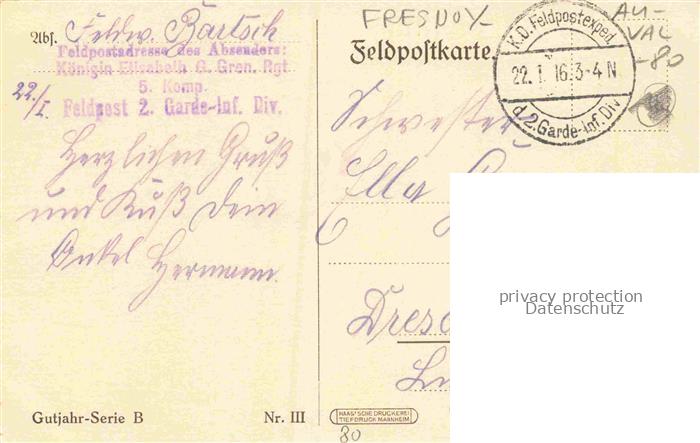 Abs. Feldw. Bartsch
Feldpostadresse des Absenders:
Königin Elisabeth G. Gren. Rgt
5. Komp.
Feldpost 2. Garde-Inf. Div.
22./I.
Herzlichen Gruß
und Kuß Dein
Onkel Hermann.
Gutjahr-Serie B
Nr. III
FRESNOY-
AU-
VAL
-80
Feldpostkarte.
K.D. Feldpostexped.
22. 1. 16. 3-4 N
d. 2. Garde-Inf. Div.
Schwester
Ella
Dresd
HAAS'SCHE DRUCKEREI
TIEFDRUCK MANNHEIM
80
privacy protection
Datenschutz